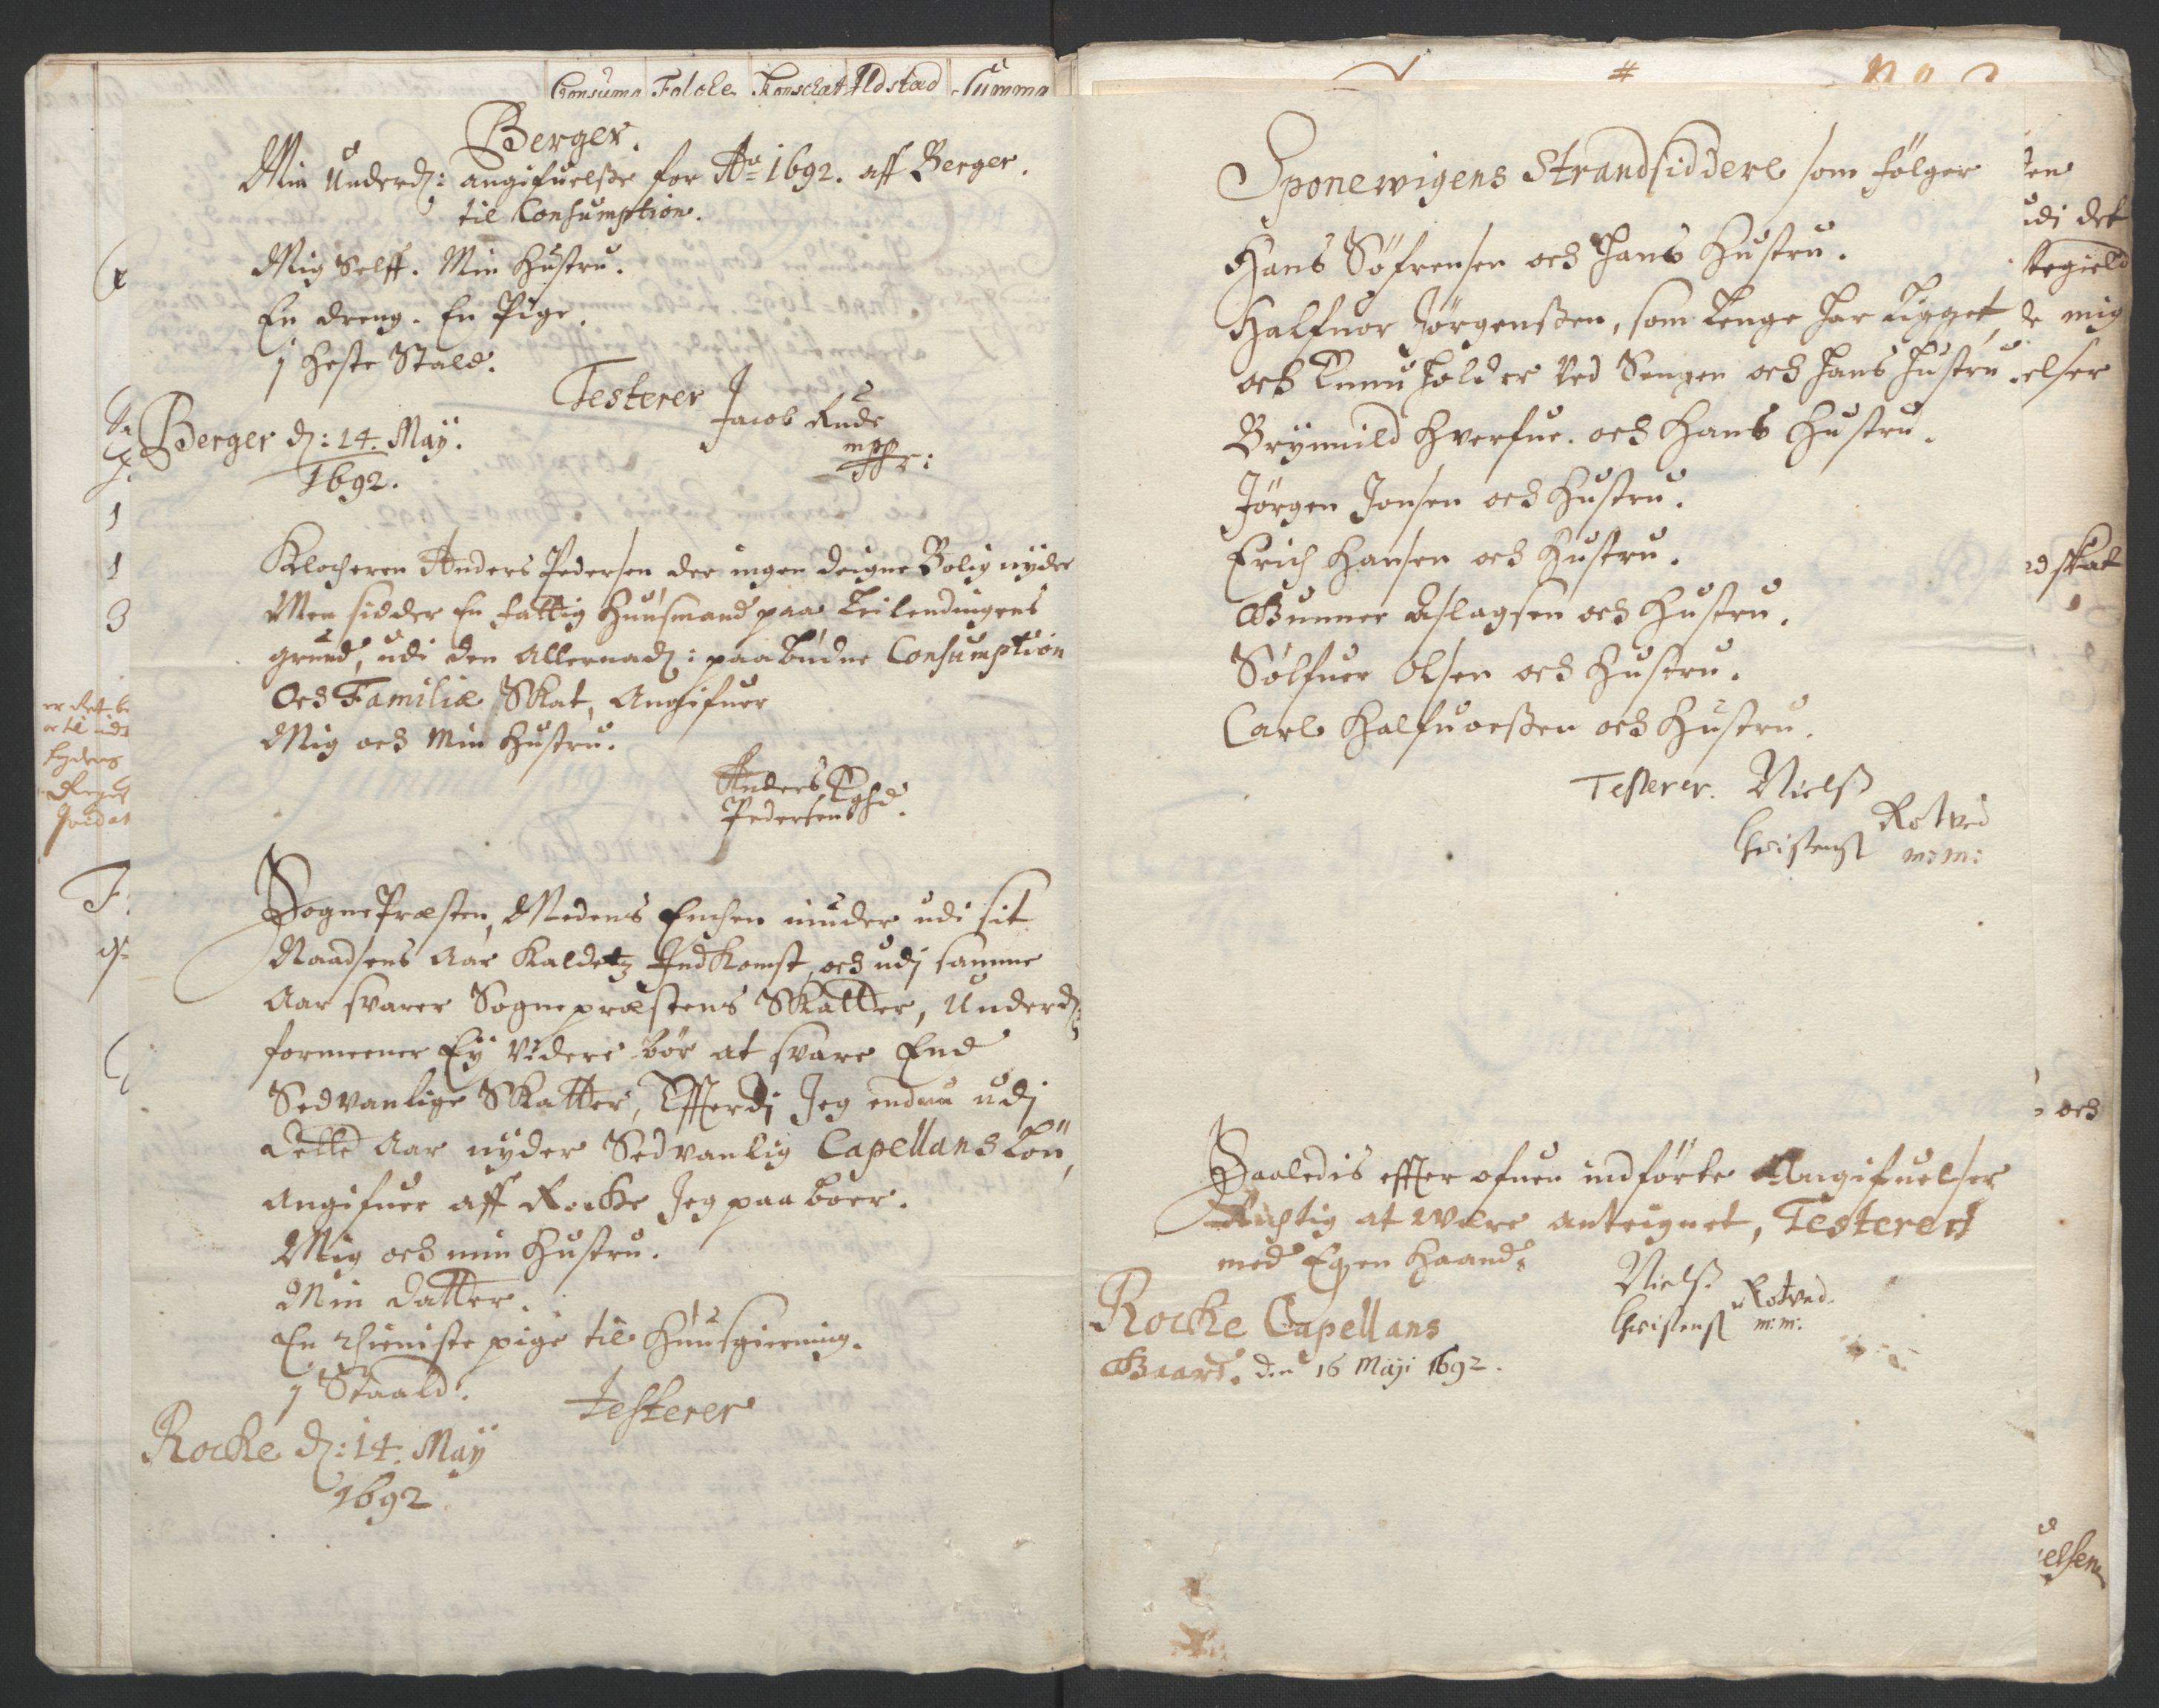 Consuma Folcke Konschat Ildstad Summa
Berger.
Min Underd: angifuelsse for Ao 1692. aff Berger.
til Consumption.
Mig Selff. Min Hustru.
En dreng. En Pige.
1 Heste Stald.
Testerer Jacob Rude
mpp
Berger d: 14. Maÿ.
1692.
Klocheren Anders Pedersen der ingen deigne Bolig nÿder
Men sidder En fattig Huusmand paa Leilendingens
grund, udi den Allernad: paabudne Consumption
Och Familie Skat, Angifuer
Mig och Min Hustru.
Anders
Pedersen
SognePræsten, Medens Enchen niuder udi sit
Naadsens Aar Kaldetz Indkomst, och udj samme
Aar svarer Sognepræstens Skatter, Underd:
formeener Eÿ Videre bör at svare End
Sedvanlige Skatter, Efferdj Jeg endnu udj
dette Aar nÿder Sedvanlig Capellans Lön,
Angifuer aff Rocke Jeg paa boer.
Mig och min Hustru.
Min datter.
En thieniste pige til Huusgierning.
1 Staald.
Testerer
Rocke d: 14. Maÿ
1692
Sponewigens Strandsiddere som fölger
Hans Söfrensen och Hans Hustru.
Halfuor Jörgenssen, som Lenge har Ligget,
och Ennu holder Ved Sengen och Hans Hustru
Brÿnnild Hverfue. och Hans Hustru.
Jörgen Jonsen och Hustru.
Erich Hansen och Hustru.
Gunner Aslagsen och Hustru.
Sölfuer Olsen och Hustru.
Carl Halfuorssen och Hustru.
Testerer. Nielss
Christens Rotved
m: m:
Saaledis effter ofuen indförte Angifuelser
Richtig at være anteignet, Testerer
med Egen Haand.
Nielss
Christens Rotved
m: m.
Rocke Capellans
Gaard. den 16 Maji 1692.
udi det
mig
elser
skat
och